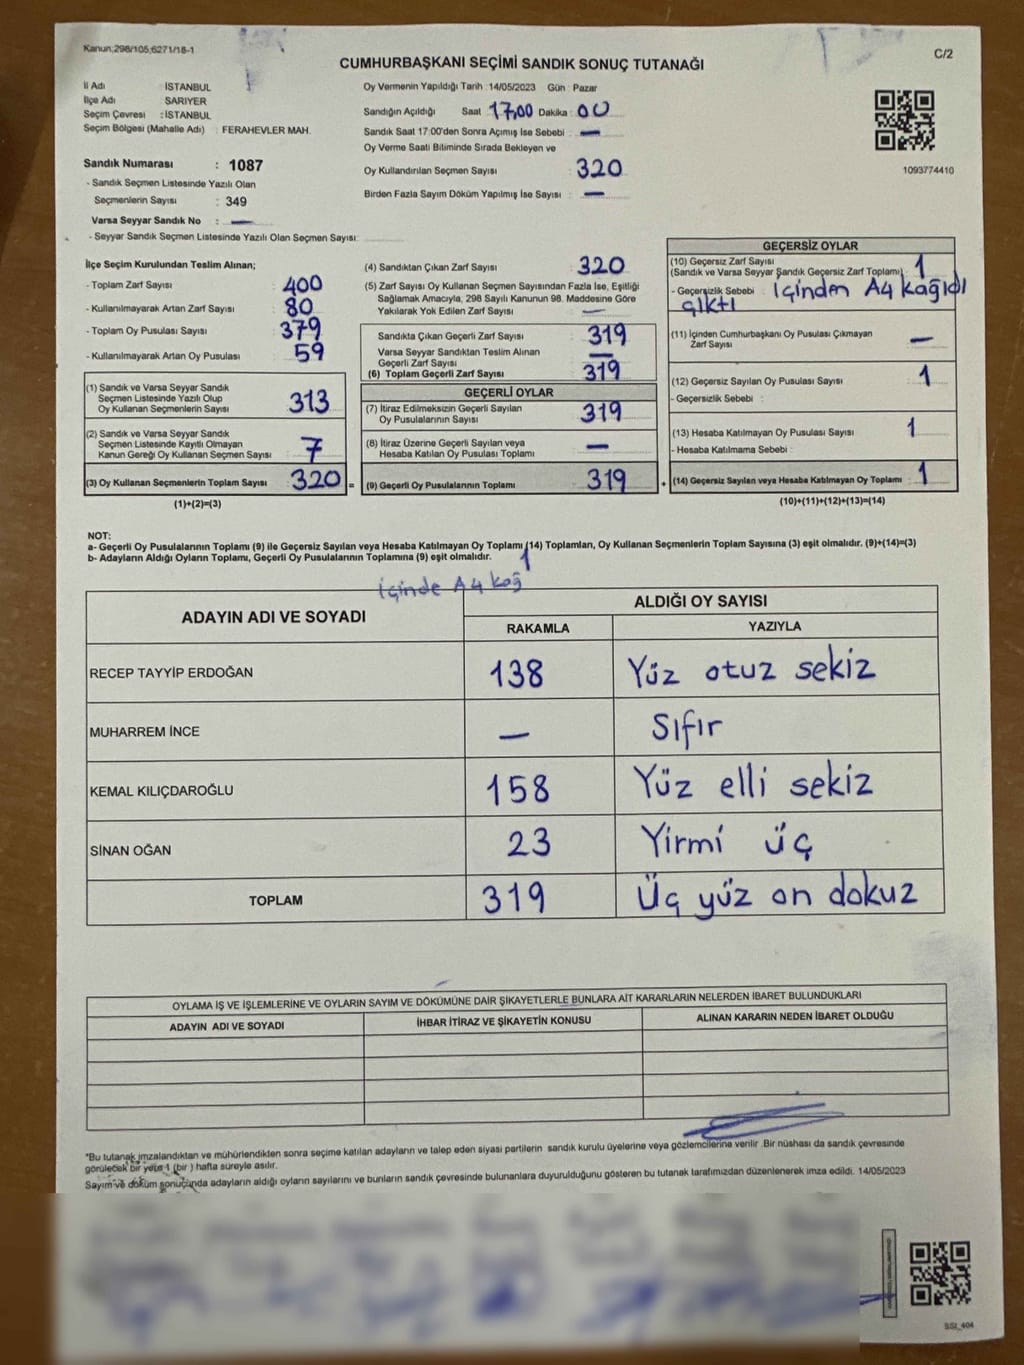 Kanun;298/105;6271/18-1
C/2
CUMHURBAŞKANI SEÇİMİ SANDIK SONUÇ TUTANAĞI
İl Adı : İSTANBUL
İlçe Adı : SARIYER
Seçim Çevresi : İSTANBUL
Seçim Bölgesi (Mahalle Adı) : FERAHEVLER MAH.
Sandık Numarası : 1087
- Sandık Seçmen Listesinde Yazılı Olan
Seçmenlerin Sayısı : 349
Varsa Seyyar Sandık No : —
- Seyyar Sandık Seçmen Listesinde Yazılı Olan Seçmen Sayısı:
Oy Vermenin Yapıldığı Tarih : 14/05/2023 Gün : Pazar
Sandığın Açıldığı Saat 17,00 Dakika : 00
Sandık Saat 17:00'den Sonra Açımış İse Sebebi : —
Oy Verme Saati Bitiminde Sırada Bekleyen ve
Oy Kullandırılan Seçmen Sayısı : 320
Birden Fazla Sayım Döküm Yapılmış İse Sayısı : —
1093774410
İlçe Seçim Kurulundan Teslim Alınan;
- Toplam Zarf Sayısı : 400
- Kullanılmayarak Artan Zarf Sayısı : 80
- Toplam Oy Pusulası Sayısı : 379
- Kullanılmayarak Artan Oy Pusulası : 59
(1) Sandık ve Varsa Seyyar Sandık
Seçmen Listesinde Yazılı Olup
Oy Kullanan Seçmenlerin Sayısı : 313
(2) Sandık ve Varsa Seyyar Sandık
Seçmen Listesinde Kayıtlı Olmayan
Kanun Gereği Oy Kullanan Seçmen Sayısı : 7
(3) Oy Kullanan Seçmenlerin Toplam Sayısı : 320 =
(1)+(2)=(3)
(4) Sandıktan Çıkan Zarf Sayısı : 320
(5) Zarf Sayısı Oy Kullanan Seçmen Sayısından Fazla İse, Eşitliği
Sağlamak Amacıyla, 298 Sayılı Kanunun 98. Maddesine Göre
Yakılarak Yok Edilen Zarf Sayısı : —
Sandıkta Çıkan Geçerli Zarf Sayısı : 319
Varsa Seyyar Sandıktan Teslim Alınan
Geçerli Zarf Sayısı : —
(6) Toplam Geçerli Zarf Sayısı : 319
GEÇERLİ OYLAR
(7) İtiraz Edilmeksizin Geçerli Sayılan
Oy Pusulalarının Sayısı : 319
(8) İtiraz Üzerine Geçerli Sayılan veya
Hesaba Katılan Oy Pusulası Toplamı : —
(9) Geçerli Oy Pusulalarının Toplamı : 319 +
GEÇERSİZ OYLAR
(10) Geçersiz Zarf Sayısı
(Sandık ve Varsa Seyyar Sandık Geçersiz Zarf Toplamı) : 1
- Geçersizlik Sebebi : içinden A4 kağıdı
çıktı
(11) İçinden Cumhurbaşkanı Oy Pusulası Çıkmayan
Zarf Sayısı : —
(12) Geçersiz Sayılan Oy Pusulası Sayısı : 1
- Geçersizlik Sebebi :
(13) Hesaba Katılmayan Oy Pusulası Sayısı : 1
- Hesaba Katılmama Sebebi :
(14) Geçersiz Sayılan veya Hesaba Katılmayan Oy Toplamı : 1
(10)+(11)+(12)+(13)=(14)
NOT:
a- Geçerli Oy Pusulalarının Toplamı (9) ile Geçersiz Sayılan veya Hesaba Katılmayan Oy Toplamı (14) Toplamları, Oy Kullanan Seçmenlerin Toplam Sayısına (3) eşit olmalıdır. (9)+(14)=(3)
b- Adayların Aldığı Oyların Toplamı, Geçerli Oy Pusulalarının Toplamına (9) eşit olmalıdır.
1
içinde A4 kağ
ADAYIN ADI VE SOYADI
ALDIĞI OY SAYISI
RAKAMLA YAZIYLA
RECEP TAYYİP ERDOĞAN 138 Yüz otuz sekiz
MUHARREM İNCE — Sıfır
KEMAL KILIÇDAROĞLU 158 Yüz elli sekiz
SİNAN OĞAN 23 Yirmi üç
TOPLAM 319 Üç yüz on dokuz
OYLAMA İŞ VE İŞLEMLERİNE VE OYLARIN SAYIM VE DÖKÜMÜNE DAİR ŞİKAYETLERLE BUNLARA AİT KARARLARIN NELERDEN İBARET BULUNDUKLARI
ADAYIN ADI VE SOYADI İHBAR İTİRAZ VE ŞİKAYETİN KONUSU ALINAN KARARIN NEDEN İBARET OLDUĞU
*Bu tutanak imzalandıktan ve mühürlendikten sonra seçime katılan adayların ve talep eden siyasi partilerin sandık kurulu üyelerine veya gözlemcilerine verilir .Bir nüshası da sandık çevresinde
görülecek bir yere 1 (bir ) hafta süreyle asılır.
Sayım ve döküm sonucunda adayların aldığı oyların sayılarını ve bunların sandık çevresinde bulunanlara duyurulduğunu gösteren bu tutanak tarafımızdan düzenlenerek imza edildi. 14/05/2023